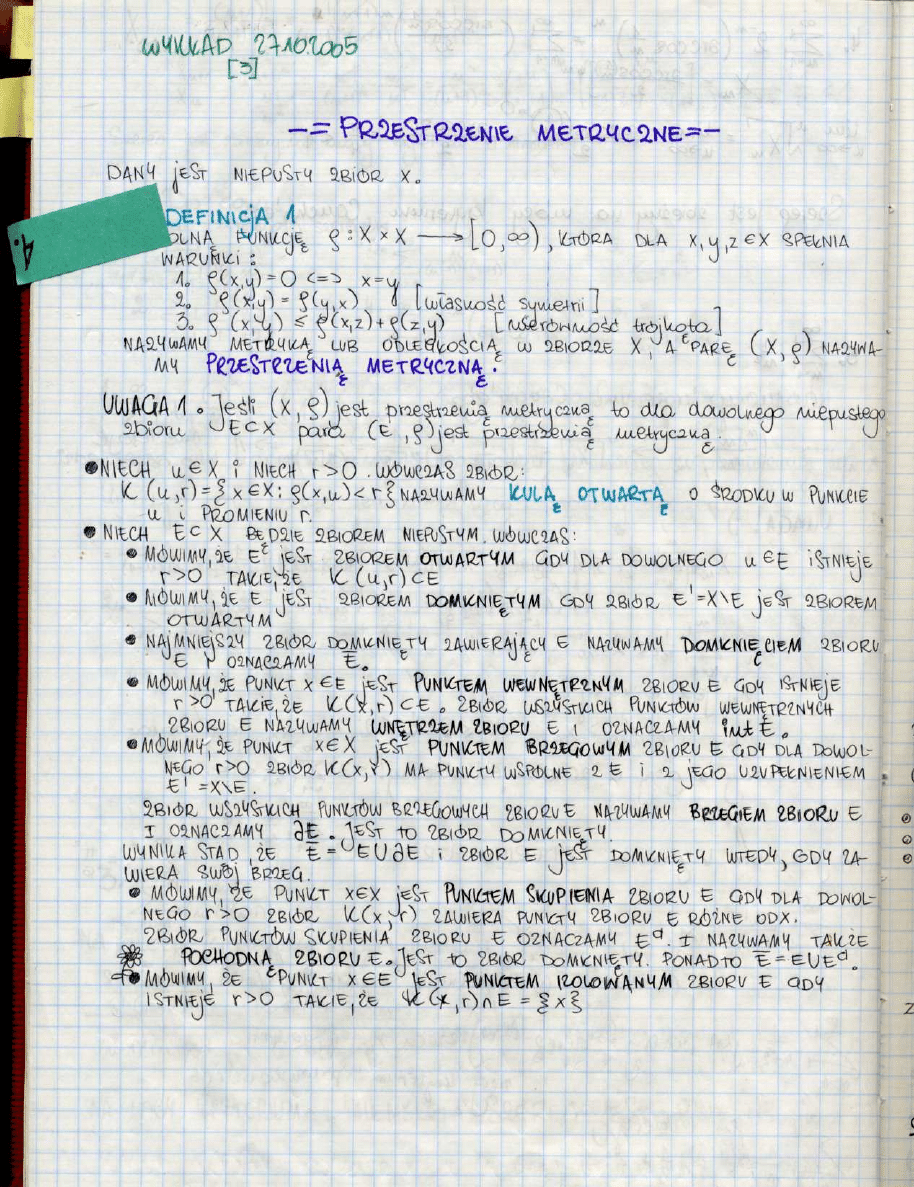 WYKŁAD 27.10.2005
[3]
-= PRZESTRZENIE METRYCZNE =-
DANY jEST NIEPUSTY ZBIÓR X.
4.
DEFINICjA 1
OLNĄ FUNKCJĘ ϱ: X × X ⟶ [0,∞), KTÓRA DLA x,y,z ∈ X SPEŁNIA
WARUNKI :
1. ϱ(x,y)=0 <=> x=y
2. ϱ(x,y) = ϱ(y,x) [własność symetrii]
3. ϱ(x,y) ≤ ϱ(x,z)+ϱ(z,y) [nierówność trójkąta]
NAZYWAMY METRYKĄ LUB ODLEGŁOŚCIĄ W ZBIORZE X, A PARĘ (X, ϱ) NAZYWA-
MY PRZESTRZENIĄ METRYCZNĄ.
UWAGA 1. Jeśli (X, ϱ) jest przestrzenią metryczną to dla dowolnego niepustego
zbioru E⊂X para (E, ϱ) jest przestrzenią metryczną.
• NIECH u∈X i NIECH r>0. WÓWCZAS ZBIÓR:
K(u,r)={x∈X: ϱ(x,u)<r} NAZYWAMY KULĄ OTWARTĄ O ŚRODKU W PUNKCIE
u i PROMIENIU r.
• NIECH E⊂X BĘDZIE ZBIOREM NIEPUSTYM. WÓWCZAS:
• MÓWIMY, ŻE E jEST ZBIOREM OTWARTYM GDY DLA DOWOLNEGO u∈E iSTNIEjE
r>0 TAKIE, ŻE K(u,r)⊂E
• MÓWIMY, ŻE E jEST ZBIOREM DOMKNIĘTYM GDY ZBIÓR E'=X\E jEST ZBIOREM
OTWARTYM
• NAjMNIEjSZY ZBIÓR DOMKNIĘTY ZAWIERAjĄCY E NAZYWAMY DOMKNIĘCIEM ZBIORU
E I OZNACZAMY E̅.
• MÓWIMY, ŻE PUNKT x∈E jEST PUNKTEM WEWNĘTRZNYM ZBIORU E GDY ISTNIEjE
r>0 TAKIE, ŻE K(x,r)⊂E. ZBIÓR WSZYSTKICH PUNKTÓW WEWNĘTRZNYCH
ZBIORU E NAZYWAMY WNĘTRZEM ZBIORU E I OZNACZAMY int E.
• MÓWIMY, ŻE PUNKT x∈X jEST PUNKTEM BRZEGOWYM ZBIORU E GDY DLA DOWOL-
NEGO r>0 ZBIÓR K(x,r) MA PUNKTY WSPÓLNE Z E i Z JEGO UZUPEŁNIENIEM
E'=X\E.
ZBIÓR WSZYSTKICH PUNKTÓW BRZEGOWYCH ZBIORU E NAZYWAMY BRZEGIEM ZBIORU E
I OZNACZAMY ∂E. JEST TO ZBIÓR DOMKNIĘTY.
WYNIKA STĄD, ŻE E̅ = E∪∂E i ZBIÓR E jEST DOMKNIĘTY WTEDY, GDY ZA-
WIERA SWÓj BRZEG.
• MÓWIMY, ŻE PUNKT x∈X jEST PUNKTEM SKUPIENIA ZBIORU E GDY DLA DOWOL-
NEGO r>0 ZBIÓR K(x,r) ZAWIERA PUNKTY ZBIORU E RÓŻNE OD X.
ZBIÓR PUNKTÓW SKUPIENIA ZBIORU E OZNACZAMY Eᵈ. I NAZYWAMY TAKŻE
POCHODNĄ ZBIORU E. JEST TO ZBIÓR DOMKNIĘTY. PONADTO E̅=E∪Eᵈ.
• MÓWIMY, ŻE PUNKT x∈E jEST PUNKTEM IZOLOWANYM ZBIORU E GDY
ISTNIEjE r>0 TAKIE, ŻE K(x,r)∩E = {x}